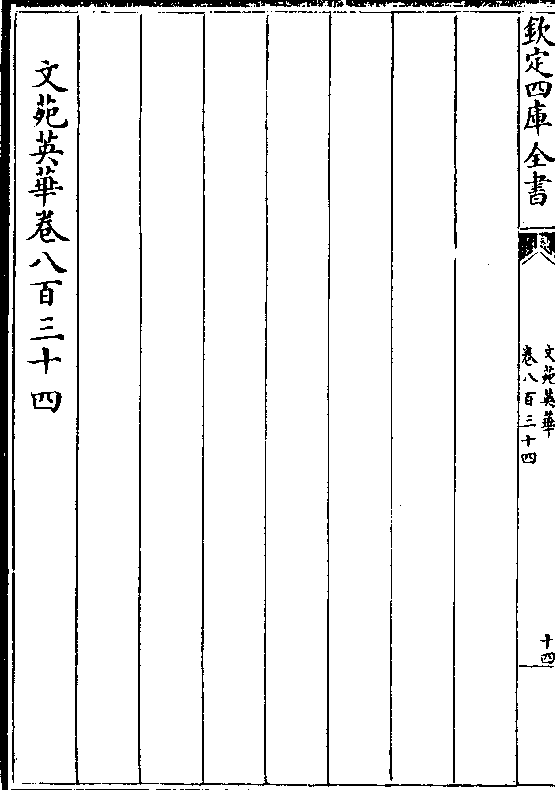 欽定四庫全書
文苑英華
卷八百三十四
十四
文苑英華卷八百三十四